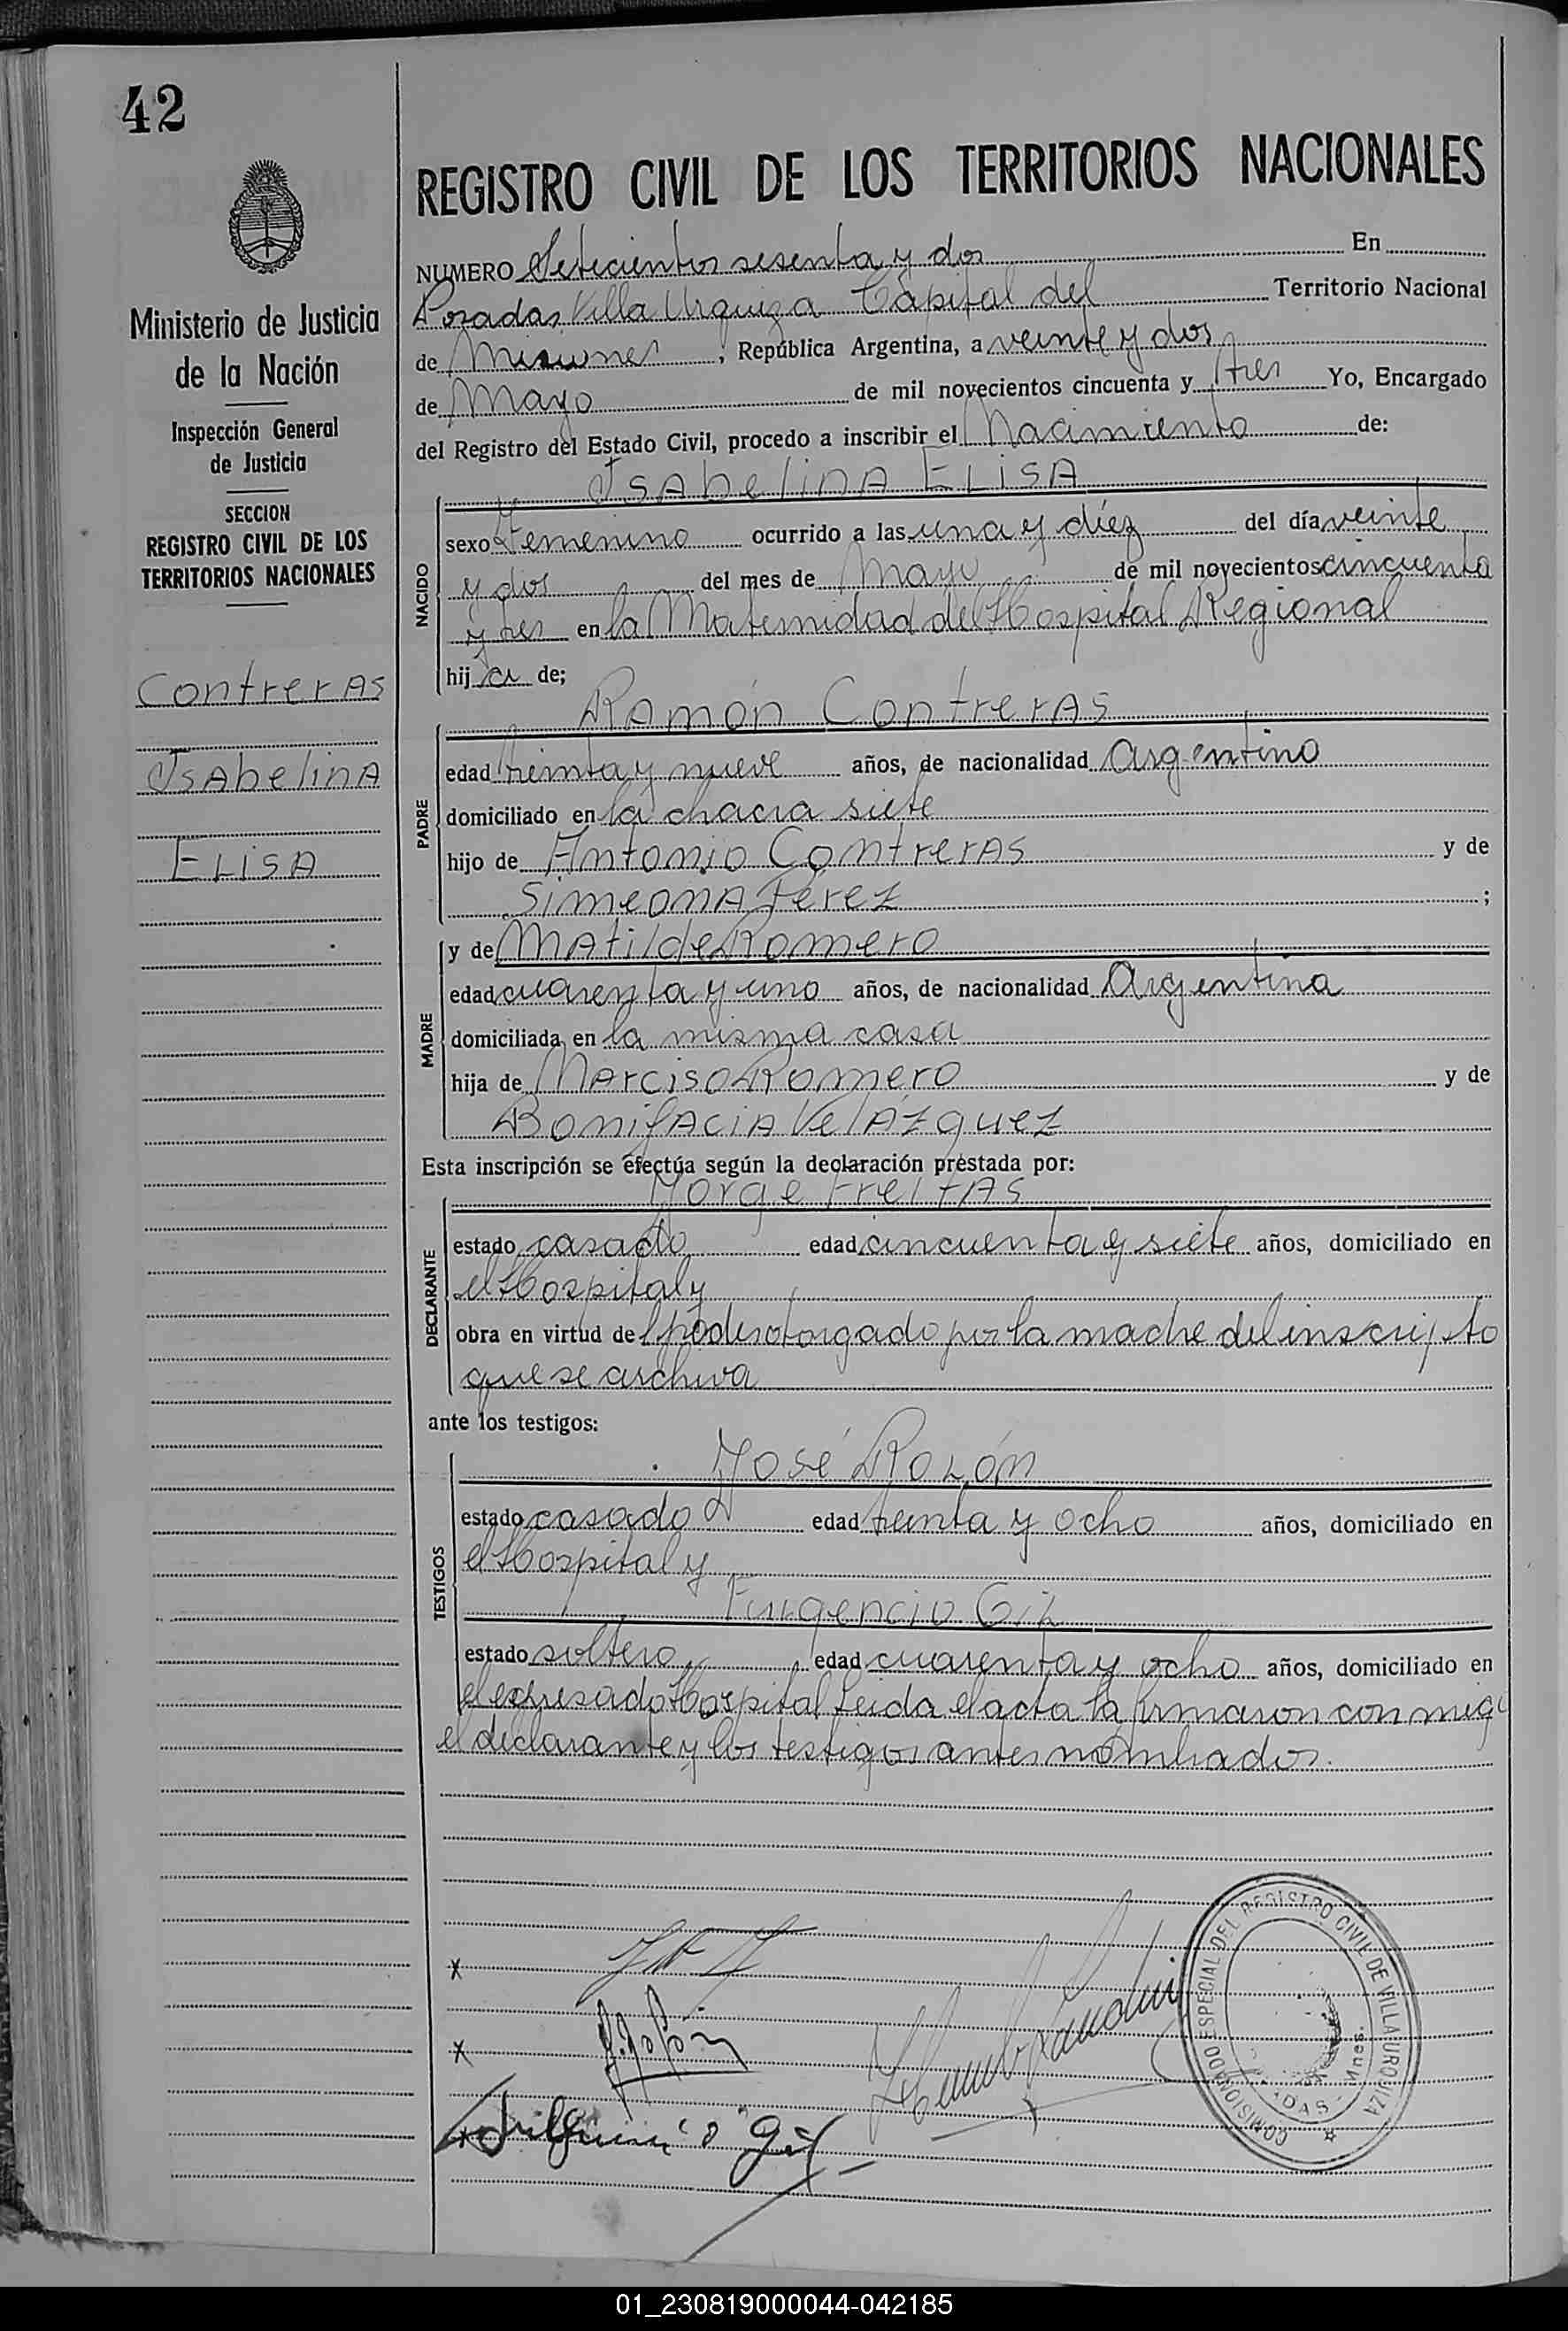 42
REGISTRO CIVIL DE LOS TERRITORIOS NACIONALES
Ministerio de Justicia
de la Nación
Inspección General
de Justicia
SECCION
REGISTRO CIVIL DE LOS
TERRITORIOS NACIONALES
Contreras
Isabelina
Elisa
NUMERO Setecientos sesenta y dos En
Posadas Villa Urquiza Capital del Territorio Nacional
de Misiones, República Argentina, a veinte y dos
de Mayo de mil novecientos cincuenta y tres Yo, Encargado
del Registro del Estado Civil, procedo a inscribir el Nacimiento de:
Isabelina Elisa
NACIDO
sexo Femenino ocurrido a las una y diez del día veinte
y dos del mes de Mayo de mil novecientos cincuenta
y tres en la Maternidad del Hospital Regional
hija de;
Ramón Contreras
PADRE
edad treinta y nueve años, de nacionalidad Argentino
domiciliado en la chacra siete
hijo de Antonio Contreras y de
Simeona Pérez ;
y de Matilde Romero
MADRE
edad cuarenta y uno años, de nacionalidad Argentina
domiciliada en la misma casa
hija de Narciso Romero y de
Bonifacia Velázquez
Esta inscripción se efectúa según la declaración prestada por:
Jorge Freitas
DECLARANTE
estado casado edad cincuenta y siete años, domiciliado en
el Hospital y
obra en virtud del poder otorgado por la madre del inscripto
que se archiva
ante los testigos:
José Rolón
TESTIGOS
estado casado edad treinta y ocho años, domiciliado en
el Hospital y
Fulgencio Gil
estado soltero edad cuarenta y ocho años, domiciliado en
el expresado Hospital Leida el acta la firmaron conmigo
el declarante y los testigos antes nombrados.
x
x
Gil
COMISIONADO ESPECIAL DEL REGISTRO CIVIL DE VILLA URQUIZA
Mnes.
01_230819000044-042185